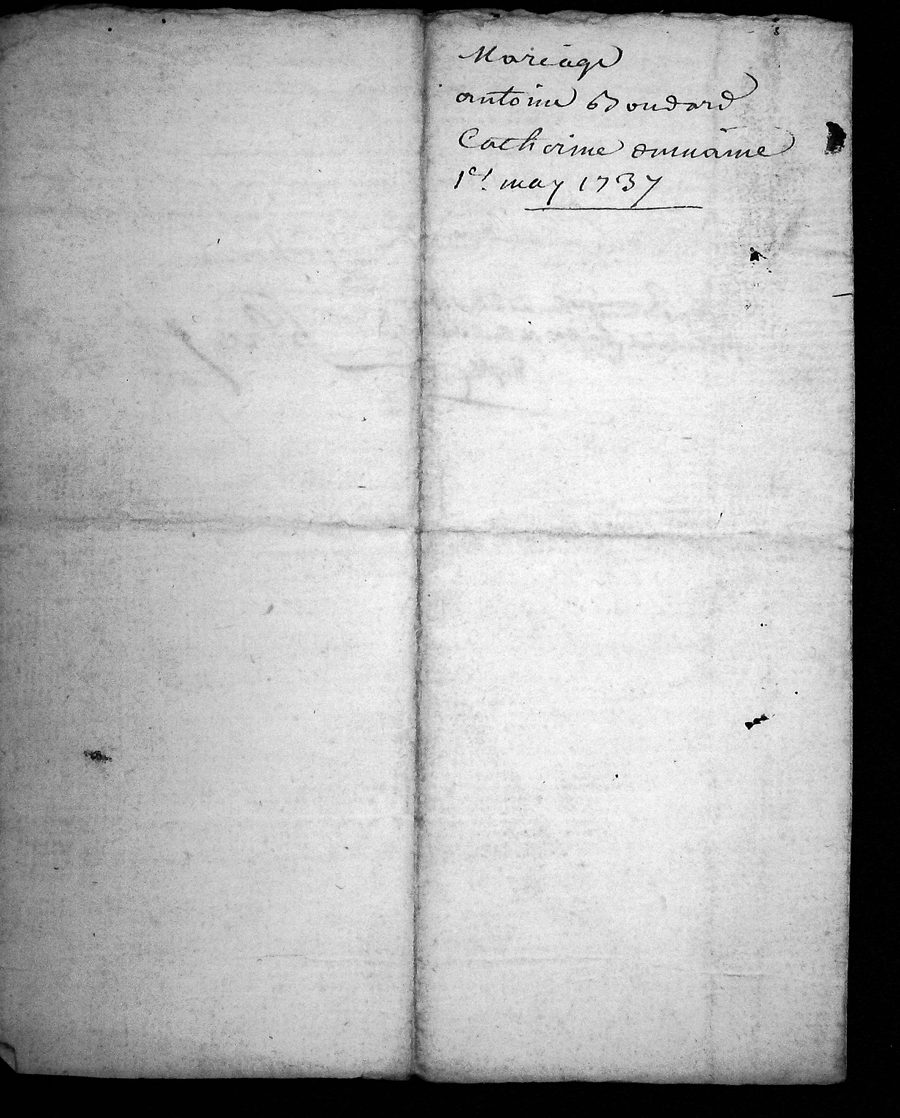 Mariage
antoine Boudard
Catherine
1er. may 1737